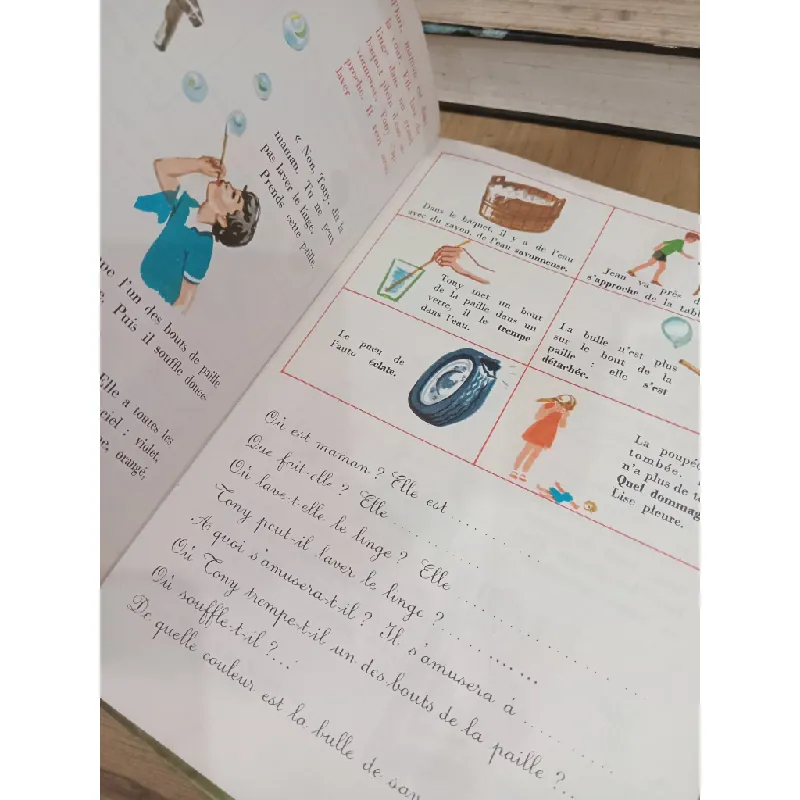 « Non, Tony, dit la
maman. Tu ne peux
pas laver le linge.
Prends cette paille.
l'un des bouts de paille
Puis il souffle douce-
Elle a toutes les
ciel : violet,
orangé,
laver
Dans le baquet, il y a de l'eau
avec du savon, de l'eau savonneuse.
Jean va près d
s'approche de la tabl
Tony met un bout
de la paille dans un
verre, il le trempe
dans l'eau.
La bulle n'est plus
sur le bout de la
paille : elle s'est
détachée.
Le pneu de
l'auto éclate.
La poupée
tombée.
n'a plus de t
Quel dommag
Lise pleure.
Où est maman ? Elle est ............
Que fait-elle ? Elle ............
Où lave-t-elle le linge ? Elle ............
Tony peut-il laver le linge ? ............
A quoi s'amusera-t-il ? Il s'amusera à ............
Où Tony trempe-t-il un des bouts de la paille ?...
Où souffle-t-il ?...
De quelle couleur est la bulle de sav